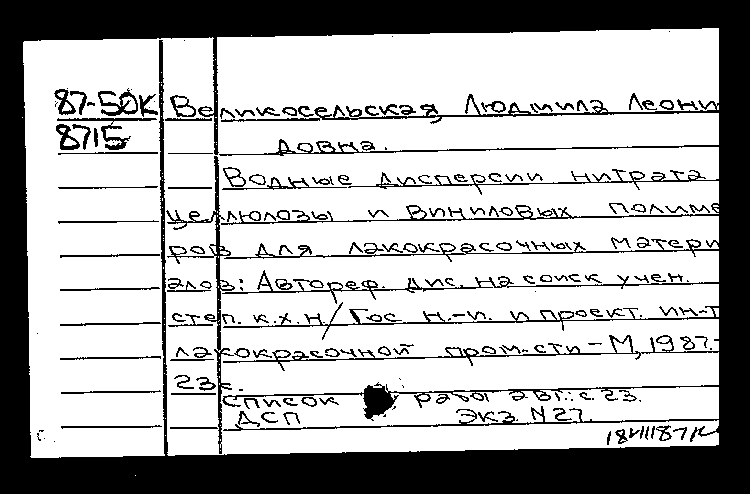 87-50К Великосельская, Людмила Леони
8715 довна.
Водные дисперсии нитрата
целлюлозы и виниловых полиме
ров для лакокрасочных матери
алов: Автореф. дис. на соиск учен.
степ. к.х.н/Гос н.-и. и проект. ин-т
лакокрасочной пром-сти - М, 1987.-
23с.
Список работ авт.: с.23.
ДСП Экз N27.